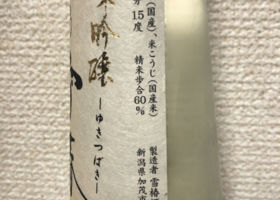 (国産)、米こうじ(国産米)
分 15度 精米歩合 60%
吟醸
―ゆきつばき―
製造者 雪椿
新潟県加茂市